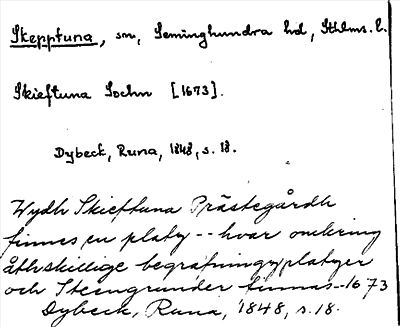 Skepptuna, sn, Seminghundra hd, Sthlms. l.
Skieftuna Sochn [1673].
Dybeck, Runa, 1848, s. 18.
Wydh Skieftuna Prästegårdh
finnes en platz -- hvar omkring
åthskillige begrafningzplatzer
och Steengrunder finnas - 1673
Dybeck, Runa, 1848, s. 18.